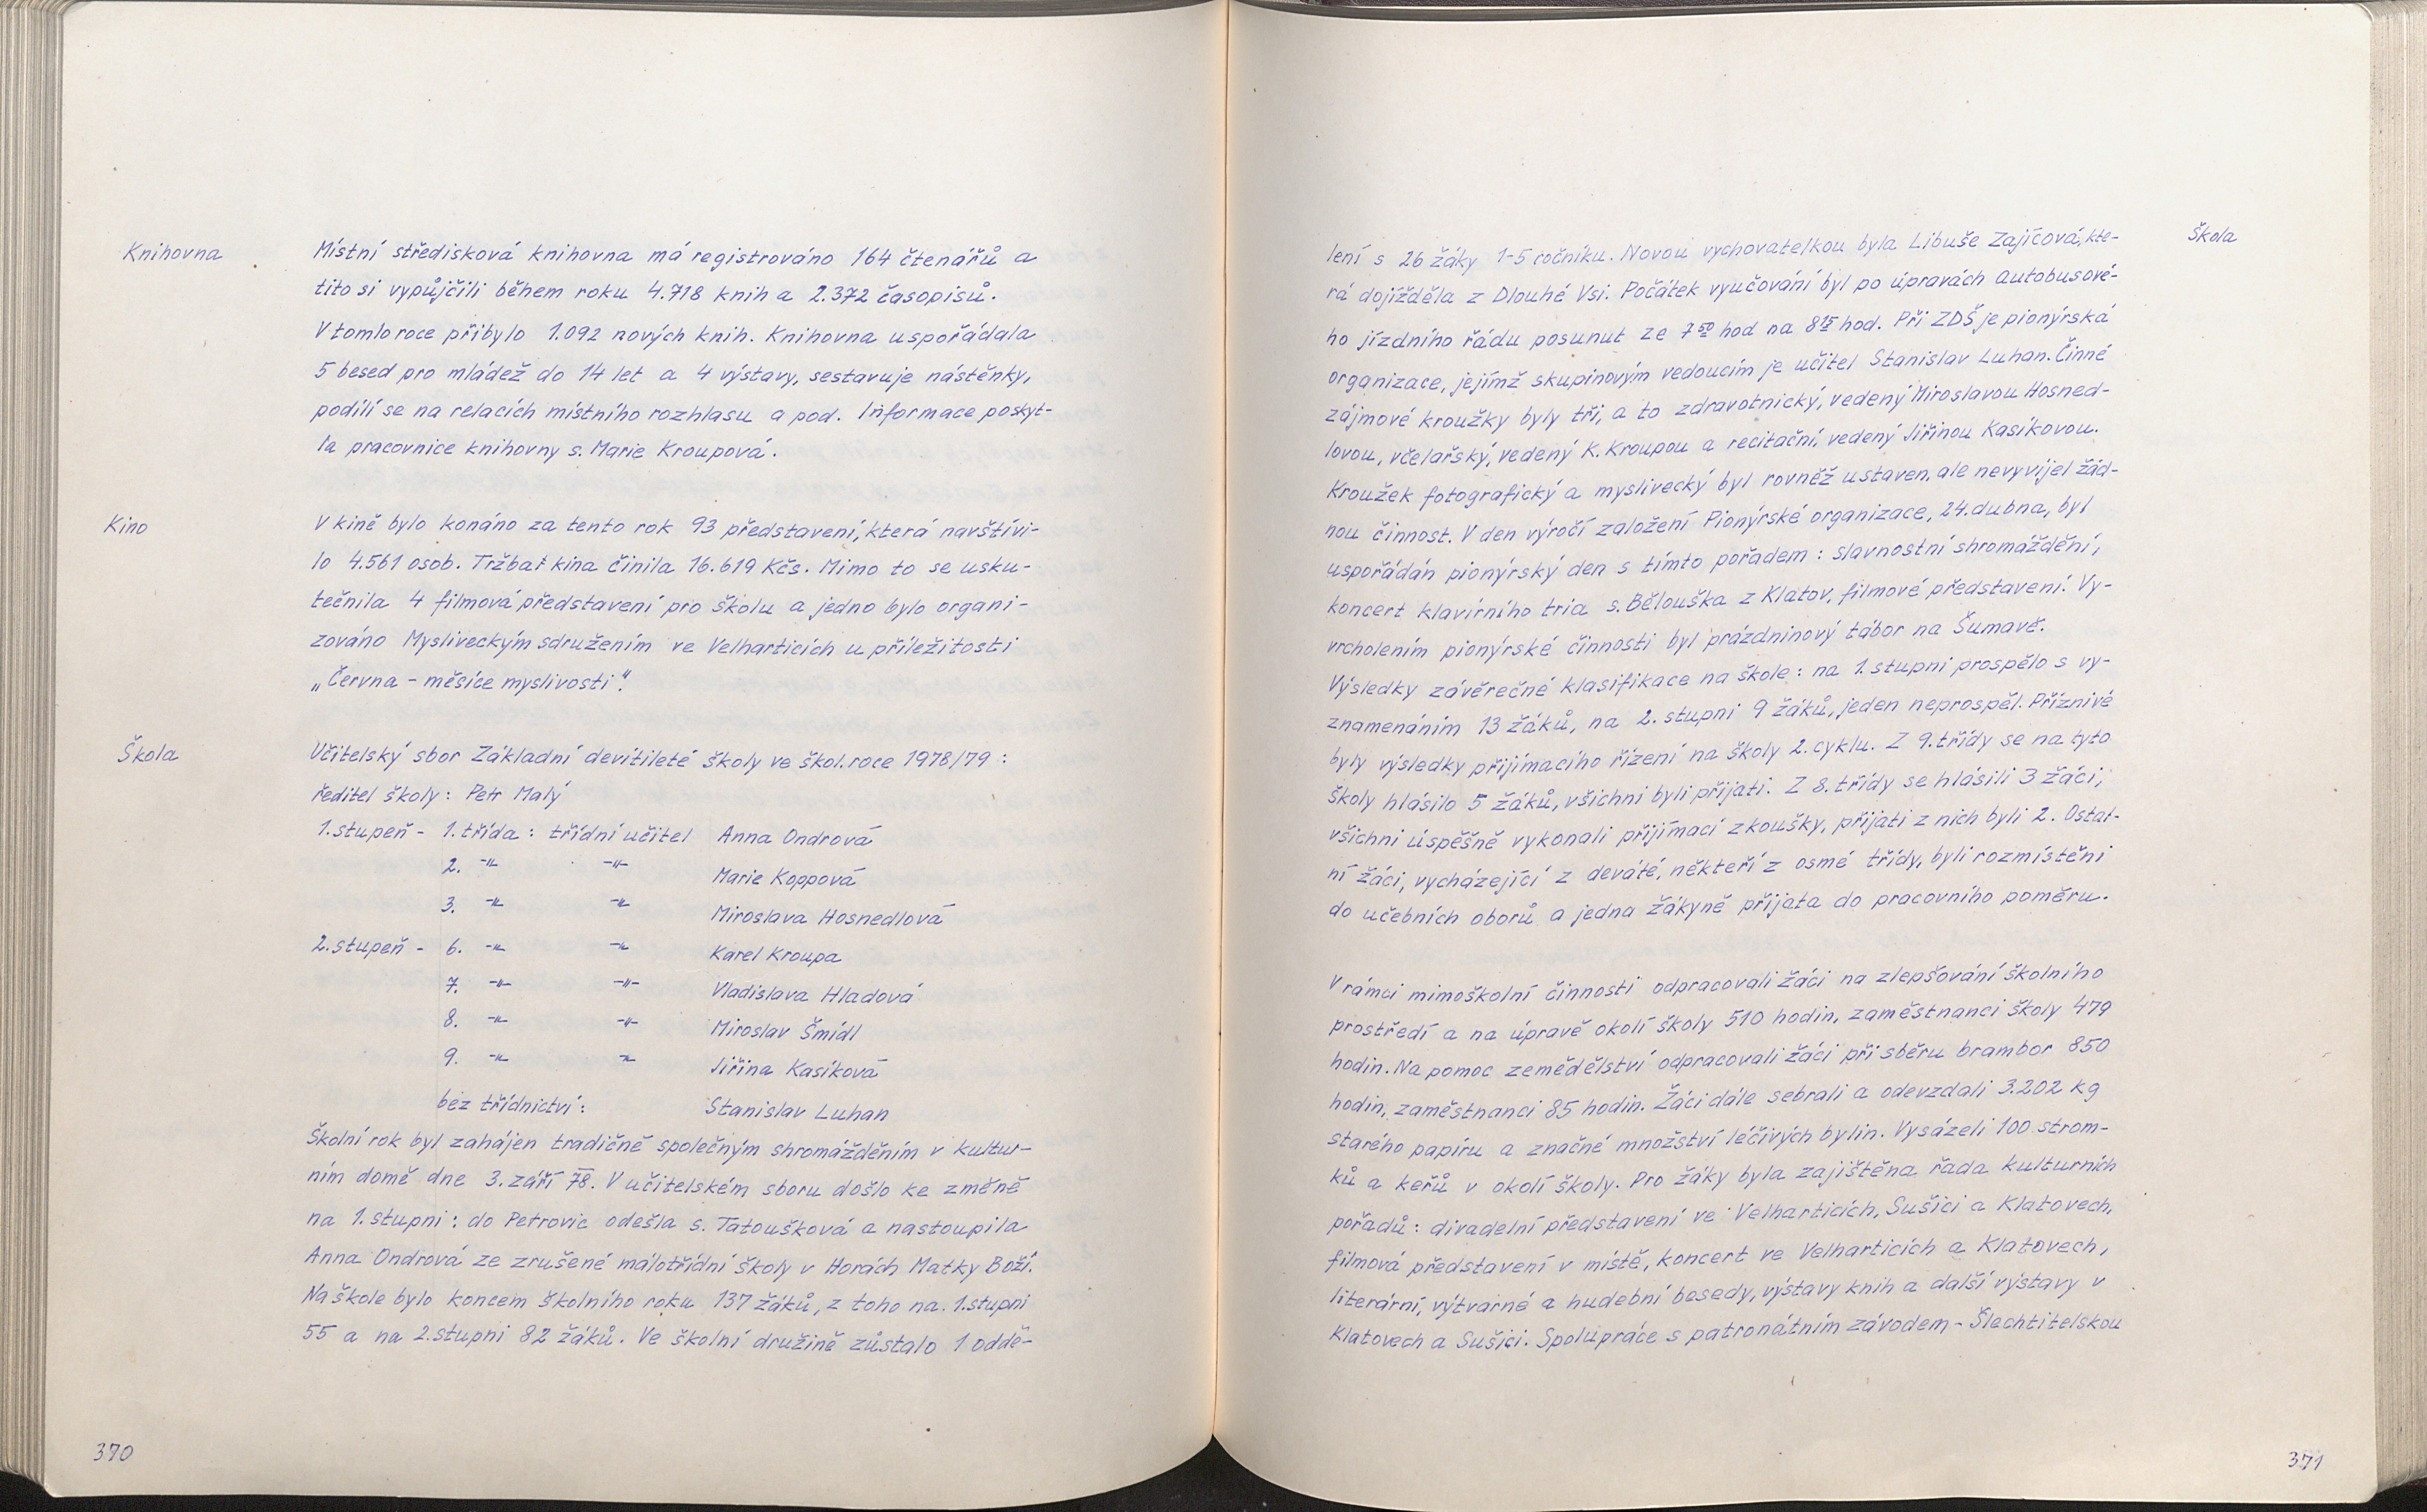 Knihovna
Místní středisková knihovna má registrováno 164 čtenářů a
tito si vypůjčili během roku 4.718 knih a 2.372 časopisů.
V tomto roce přibylo 1.092 nových knih. Knihovna uspořádala
5 besed pro mládež do 14 let a 4 výstavy, sestavuje nástěnky,
podílí se na relacích místního rozhlasu a pod. Informace poskyt-
la pracovnice knihovny s. Marie Kroupová.
Kino
V kině bylo konáno za tento rok 93 představení, která navštívi-
lo 4.561 osob. Tržba kina činila 16.619 Kčs. Mimo to se usku-
tečnila 4 filmová představení pro školu a jedno bylo organi-
zováno Mysliveckým sdružením ve Velharticích u příležitosti
„Června - měsíce myslivosti".
Škola
Učitelský sbor Základní devítileté školy ve škol. roce 1978/79 :
ředitel školy : Petr Malý
1. stupeň - 1. třída : třídní učitel Anna Ondrová
2. -"- -"- Marie Koppová
3. -"- -"- Miroslava Hosnedlová
2. stupeň - 6. -"- -"- Karel Kroupa
7. -"- -"- Vladislava Hladová
8. -"- -"- Miroslav Šmídl
9. -"- -"- Jiřina Kasíková
bez třídnictví : Stanislav Luhan
Školní rok byl zahájen tradičně společným shromážděním v kultur-
ním domě dne 3. září 78. V učitelském sboru došlo ke změně
na 1. stupni : do Petrovic odešla s. Tatoušková a nastoupila
Anna Ondrová ze zrušené málotřídní školy v Horách Matky Boží.
Na škole bylo koncem školního roku 137 žáků, z toho na 1. stupni
55 a na 2. stupni 82 žáků. Ve školní družině zůstalo 1 oddě-
370
Škola
lení s 26 žáky 1-5 ročníku. Novou vychovatelkou byla Libuše Zajícová, kte-
rá dojížděla z Dlouhé Vsi. Počátek vyučování byl po úpravách autobusové-
ho jízdního řádu posunut ze 7 50 hod na 8 15 hod. Při ZDŠ je pionýrská
organizace, jejímž skupinovým vedoucím je učitel Stanislav Luhan. Činné
zájmové kroužky byly tři, a to zdravotnický, vedený Miroslavou Hosned-
lovou, včelařský, vedený K. Kroupou a recitační, vedený Jiřinou Kasíkovou.
Kroužek fotografický a myslivecký byl rovněž ustaven, ale nevyvíjel žád-
nou činnost. V den výročí založení Pionýrské organizace, 24. dubna, byl
uspořádán pionýrský den s tímto pořadem : slavnostní shromáždění,
koncert klavírního tria s. Bělouška z Klatov, filmové představení. Vy-
vrcholením pionýrské činnosti byl prázdninový tábor na Šumavě.
Výsledky závěrečné klasifikace na škole : na 1. stupni prospělo s vy-
znamenáním 13 žáků, na 2. stupni 9 žáků, jeden neprospěl. Příznivé
byly výsledky přijímacího řízení na školy 2. cyklu. Z 9. třídy se na tyto
školy hlásilo 5 žáků, všichni byli přijati. Z 8. třídy se hlásili 3 žáci,
všichni úspěšně vykonali přijímací zkoušky, přijati z nich byli 2. Ostat-
ní žáci, vycházející z deváté, někteří z osmé třídy, byli rozmístěni
do učebních oborů a jedna žákyně přijata do pracovního poměru.
V rámci mimoškolní činnosti odpracovali žáci na zlepšování školního
prostředí a na úpravě okolí školy 510 hodin, zaměstnanci školy 479
hodin. Na pomoc zemědělství odpracovali žáci při sběru brambor 850
hodin, zaměstnanci 85 hodin. Žáci dále sebrali a odevzdali 3.202 kg
starého papíru a značné množství léčivých bylin. Vysázeli 100 strom-
ků a keřů v okolí školy. Pro žáky byla zajištěna řada kulturních
pořadů : divadelní představení ve Velharticích, Sušici a Klatovech,
filmová představení v místě, koncert ve Velharticích a Klatovech,
literární, výtvarné a hudební besedy, výstavy knih a další výstavy v
Klatovech a Sušici. Spolupráce s patronátním závodem - Šlechtitelskou
371